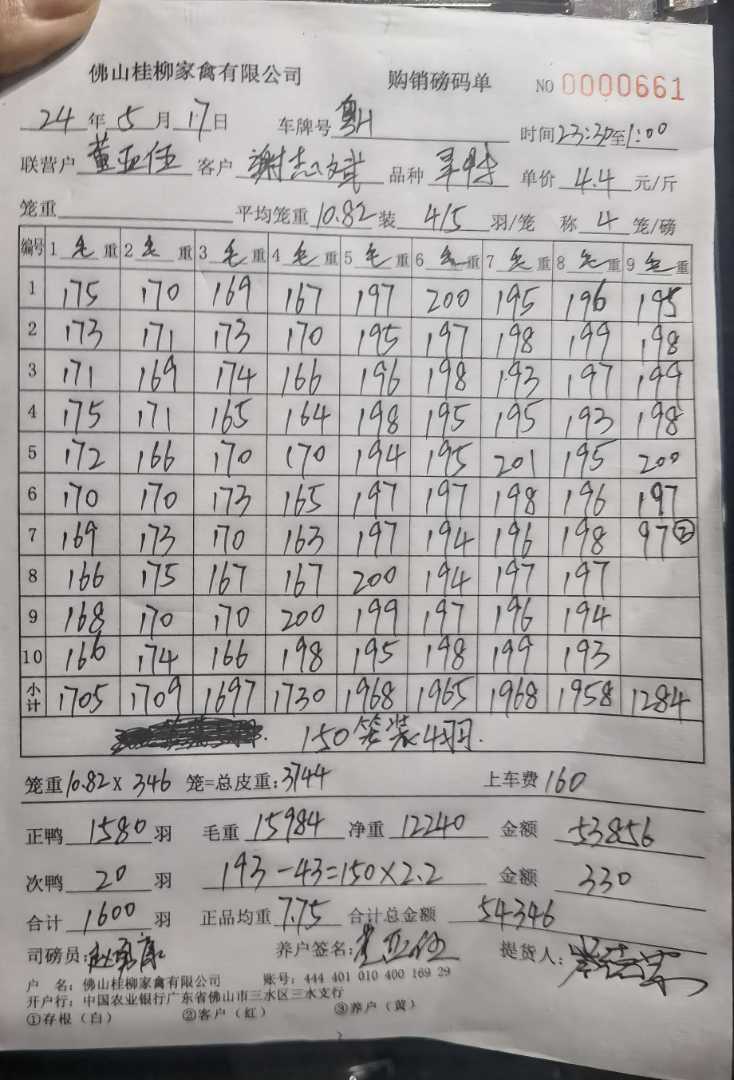 佛山桂柳家禽有限公司 购销磅码单 NO 0000661
24 年 5 月 17 日 车牌号 粤H 时间 23:30 至 1:00
联营户 黄亚伍 客户 谢志斌 品种 单价 4.4 元/斤
笼重 平均笼重 10.82 装 4/5 羽/笼 称 4 笼/磅
编号 1 毛 重 2 毛 重 3 毛 重 4 毛 重 5 毛 重 6 毛 重 7 毛 重 8 毛 重 9 毛 重
1 175 170 169 167 197 200 195 196 195
2 173 171 173 170 195 197 198 199 198
3 171 169 174 166 196 198 193 197 199
4 175 171 165 164 198 195 195 193 198
5 172 166 170 170 194 195 201 195 200
6 170 170 173 165 197 197 198 196 197
7 169 173 170 163 197 194 196 198 97②
8 166 175 167 167 200 194 197 197
9 168 170 170 200 199 197 196 194
10 166 174 166 198 195 198 199 193
小计 1705 1709 1697 1730 1968 1965 1968 1958 1284
150笼装4羽.
笼重 10.82 x 346 笼=总皮重: 3744 上车费 160
正鸭 1580 羽 毛重 15984 净重 12240 金额 53856
次鸭 20 羽 193-43=150×2.2 金额 330
合计 1600 羽 正品均重 7.75 合计总金额 54346
司磅员: 养户签名: 黄亚伍 提货人:
户 名: 佛山桂柳家禽有限公司 账号: 444 401 010 400 169 29
开户行: 中国农业银行广东省佛山市三水区三水支行
①存根(白) ②客户(红) ③养户(黄)